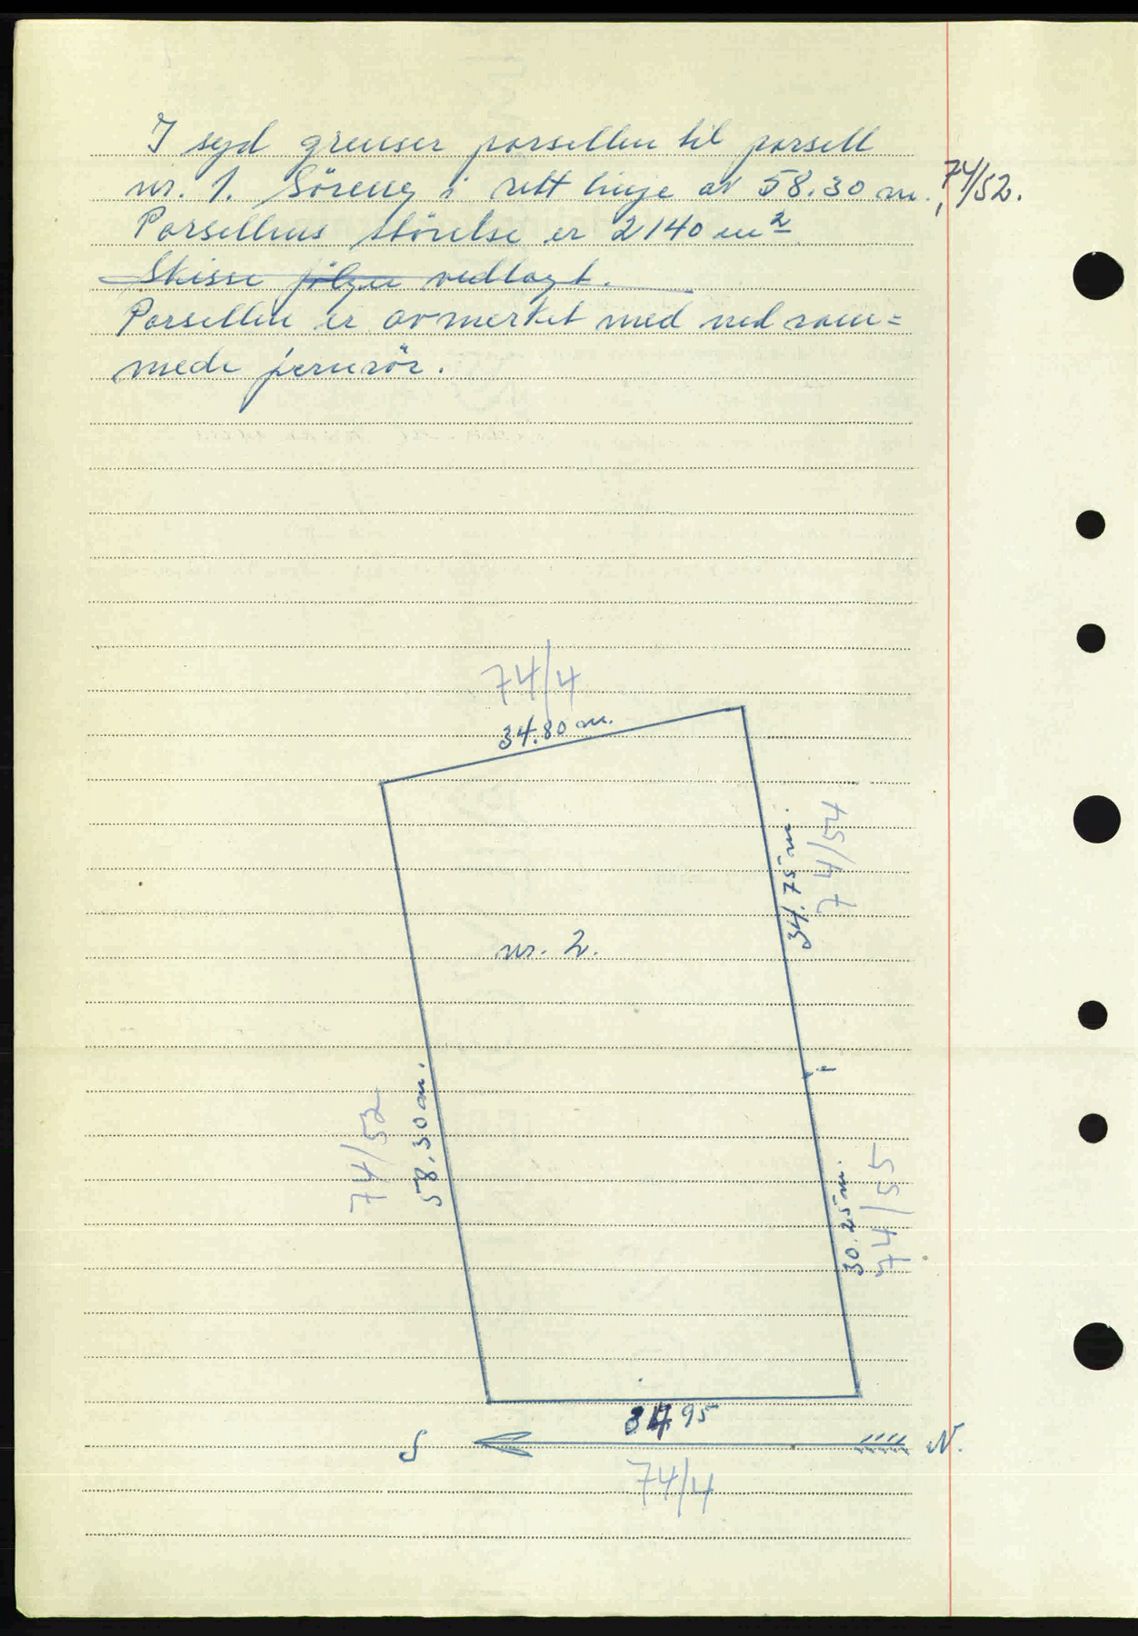 I syd grenser parsellen til parsell
nr. 1. Söreng i rett linje av 58.30 m., 74/52.
Parsellens störelse er 2140 m²
Skisse fölger vedlagt.
Parsellen er avmerket med ned ram=
mede jernrör.
74/4
34.80 m.
34.75 m.
74/54
nr. 2.
58.30 m.
74/52
30.25 m.
74/55
34.95
S N.
74/4